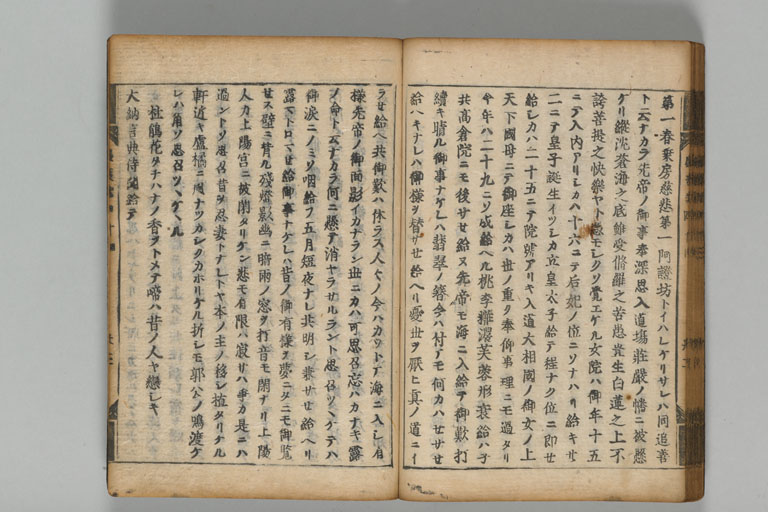 第一春乗房慈悲第一阿證坊トイハレケリサレハ同追善
ト云ナカラ先帝ノ御事奉深思入道場荘厳ノ幡ニ被懸
ケリ縦沈蒼海之底雖受脩羅之苦患発生白蓮之上不
誇菩提之快樂ヤト慥モレクソ覚エケル女院ハ御年十五
ニテ入内アリシカハ十六ニテ后妃ノ位ニソナハリ給キ廿
二ニテ皇子誕生イツシカ立皇太子給テ程ナク位ニ即セ
給シカハ二十五ニテ院號アリキ入道大相國ノ御女ノ上
天下國母ニテ御座シカハ世ノ重ク奉仰事理ニモ過タリ
今年ハ二十九ニソ成給ヘル桃李粧濃芙蓉形衰給ハ子
共高倉院ニモ後サセ給ヌ先帝モ海ニ入給テ御歎打
續キ晴ル御事ナケレハ翡翠ノ簪今ハ付テモ何カハせサせ
給ヘキナレハ御様ヲ替サせ給ヘリ憂世ヲ厭ヒ真ノ道ニイ
ラせ給ヘ共御歎ハ休ラス人々ノ今ハカウトテ海ニ入シ有
様先帝ノ御面影イカナラン世ニカハ可思召忘ハカナキ露
ノ命ト云ナカラ何ニ懸テ消ヤラサルラント思召ツヽケテハ
御涙ニノミソ咽給フ五月短夜ナレ共明シ兼サせ給ヘリ
露マトロマせ給御事ナケレハ昔ノ御有様ヲ夢ニタニモ御覧
せス壁ニ背ル殘燈影幽ニ暗雨ノ窓ヲ打音モ閑ナリ上陽
人カ上陽宮ニ被閉タリケン悲モ有限ハ寂サハ争カ是ニハ
過ントソ思召昔ヲ忍妻トナレトヤ本ノ主ノ移シ植タリケル
軒近キ盧橘ニ風ナツカシクカホリケル折シモ郭公ノ鳴渡ケ
レハ角ソ思召ツヽケヽル
杜鵑花タチハナノ香ヲトメテ啼ハ昔ノ人ヤ戀シキ
大納言典侍聞給テ